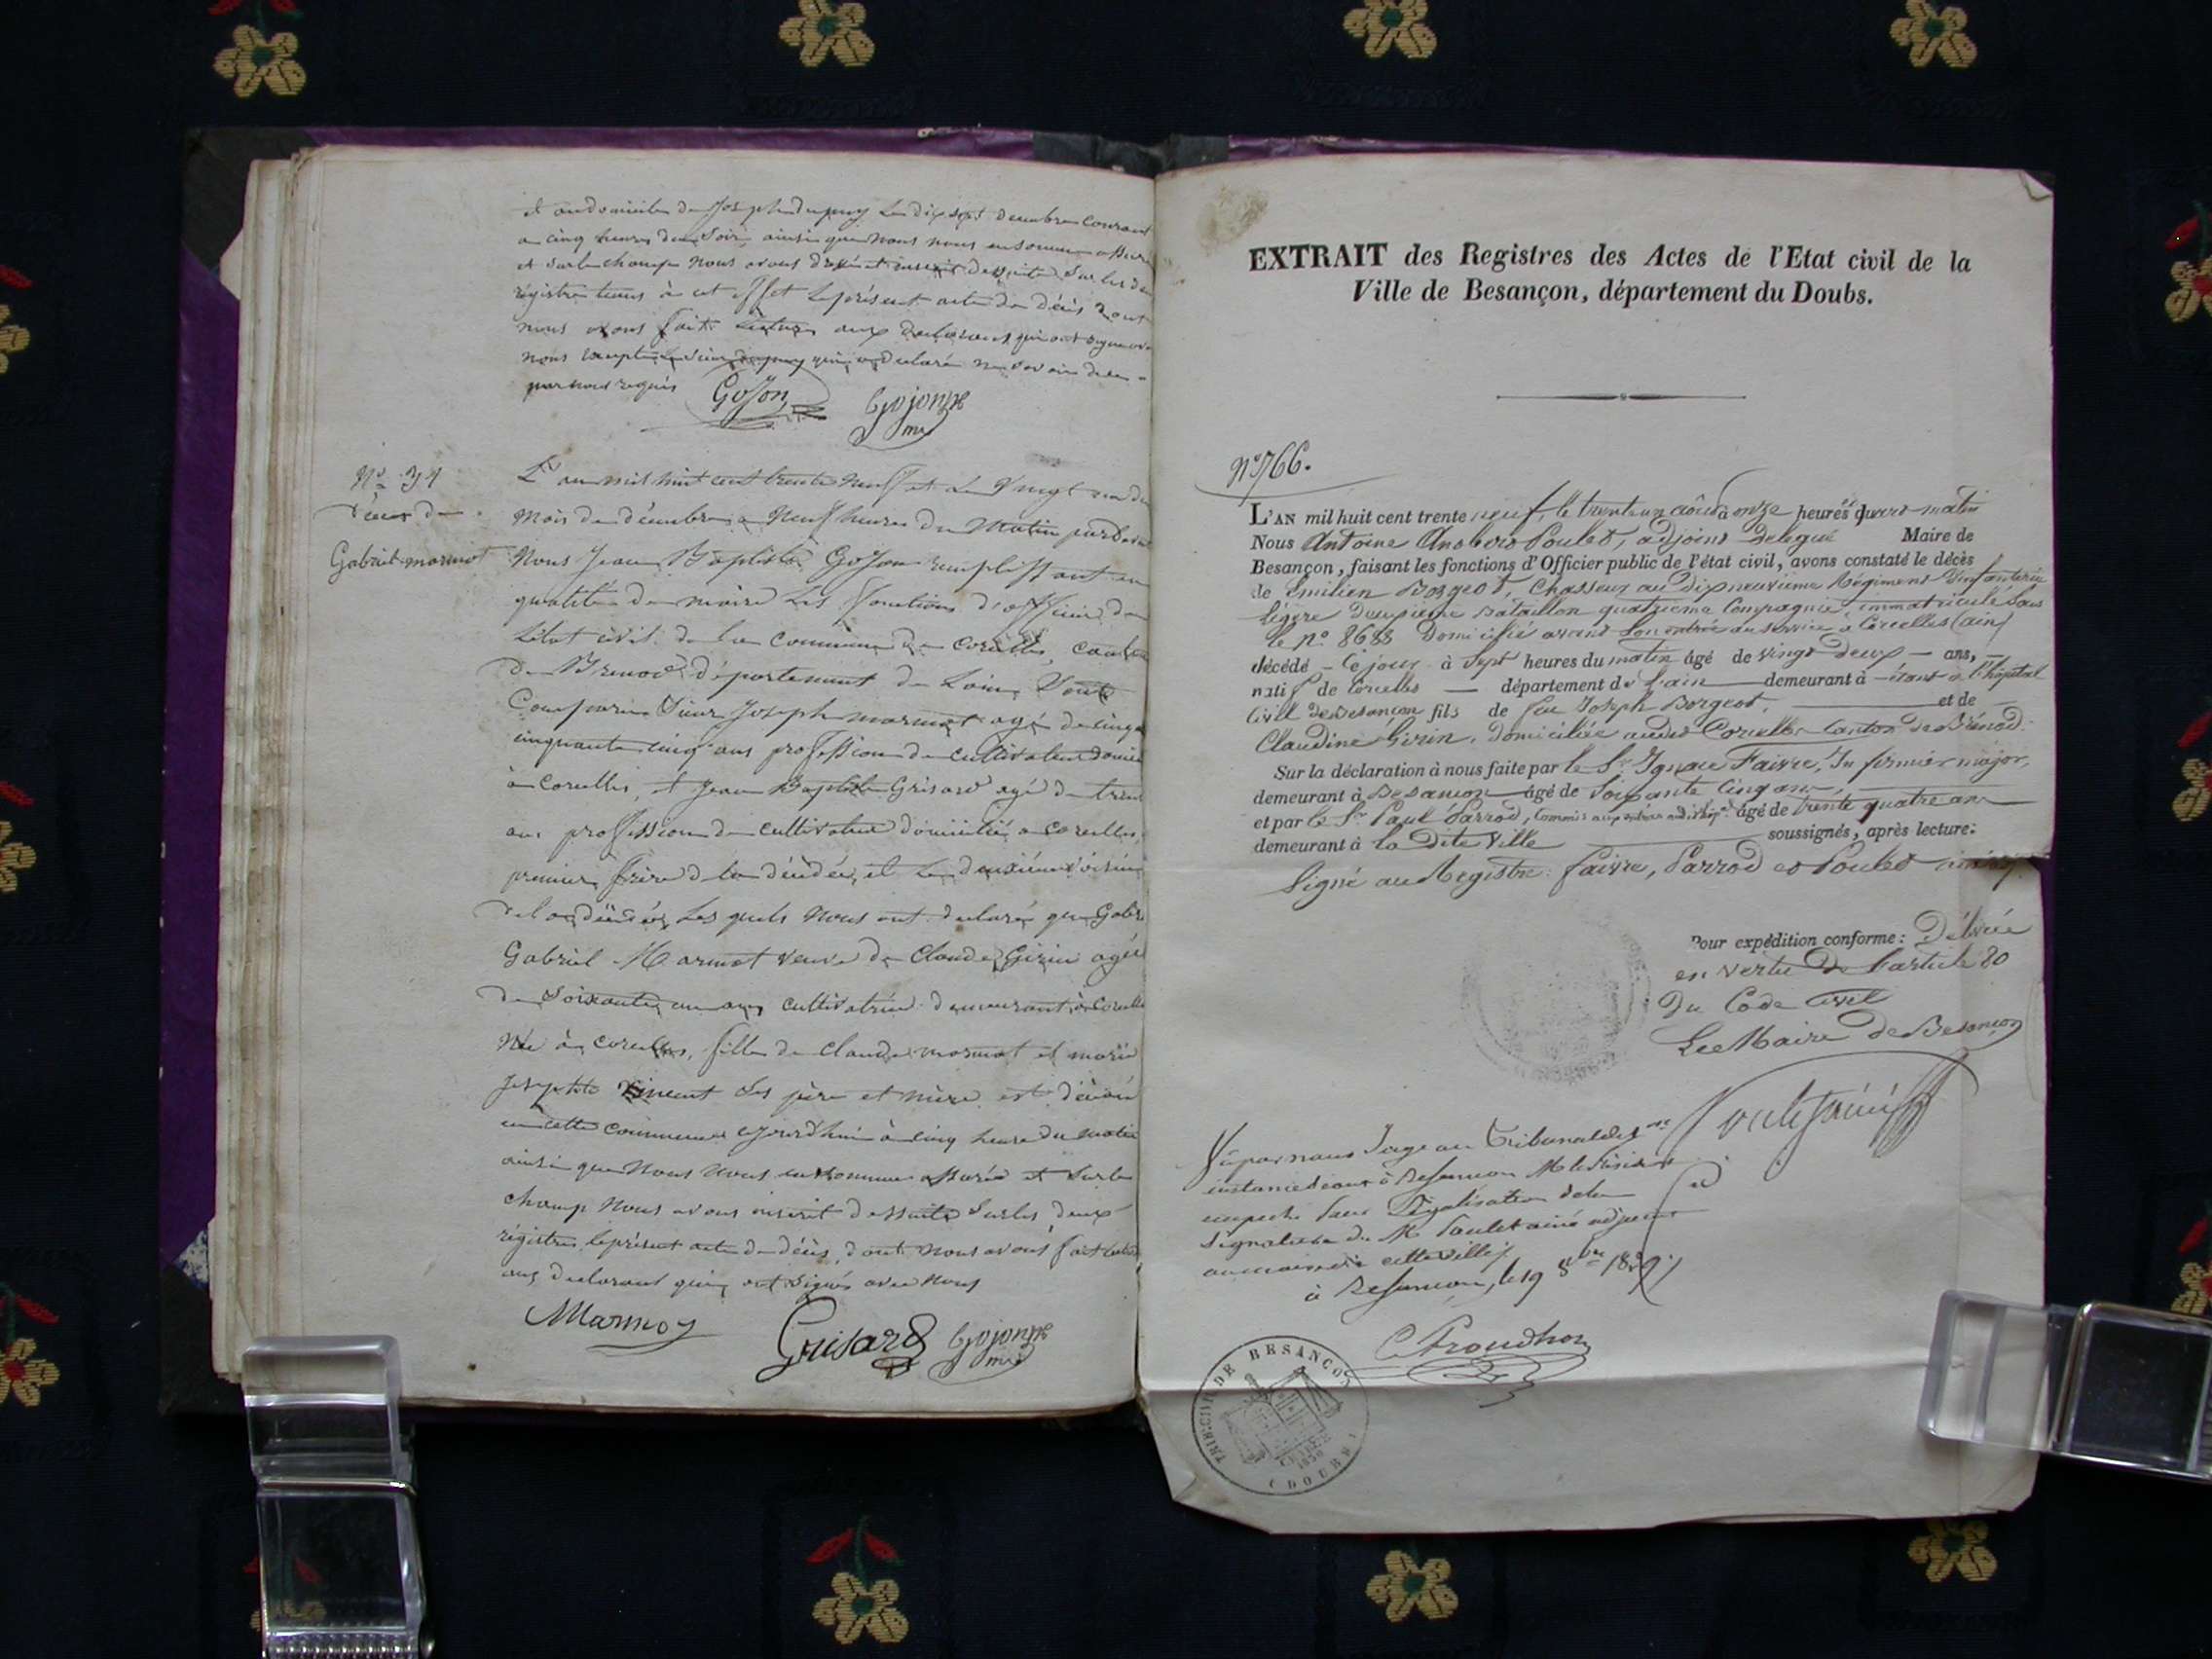 et au domicile de Joseph dupuy le dix sept decembre courant
a cinq heures du Soir, ainsi que nous nous en somme assuré
et sur le champ nous avons dressé et inscrit de suite sur les deux
régistre tenus à cet effet le présent acte de décès dont
nous avons fait lecture aux declarans qui ont signé avec
nous excepté le sieur dupuy qui a declaré ne savoir de ce
par nous requis
GoJon
Gojon
N° 31
Décès de
Gabriel marmot
L'an mil huit cent trente neuf et le vingt un du
mois de décembre a neuf heures du matin par devant
nous Jean Baptiste GoJon remplissant en
qualité de maire les fonctions d'officier de
l'état civil de la commune de corcelles, canton
de Brenod département de Lain, Sont
Comparus Sieur Joseph marmot agé de cinq
cinquante cinq ans profession de cultivateur domicilié
à corcelles, et Jean Baptiste Grisard agé de trente
ans profession de cultivateur domicilié a corcelles,
premier frère d la décédée, et le deuxième voisin
de la décédée, les quels nous ont declaré que Gabri
Gabriel Marmot veuve de Claude Girin agée
de soixante un ans cultivatrice demeurant à Corcelles
Née à corcelles, fille de claude marmot et marie
Josephte vincent ses père et mère est décédée
en cette commune cejourd'hui à cinq heure du matin
ainsi que nous nous en somme assuré et sur le
champ nous avons inscrit de suite sur les deux
régistres le présent acte de décès, dont nous avons fait lecture
aux declarant qui ont signés avec nous
Marmot
Grisard
Gojon
EXTRAIT des Registres des Actes de l'Etat civil de la
Ville de Besançon, département du Doubs.
N° 766.
L'AN mil huit cent trente neuf, le trente un août à onze heures du matin
Nous Antoine Poulet, adjoint délégué Maire de
Besançon, faisant les fonctions d'Officier public de l'état civil, avons constaté le décès
de Emilien Borgeot, Chasseur au Dixneuvieme Régiment d'infanterie
légère deuxieme Bataillon quatrieme Compagnie, immatriculé Sous
le n° 8688 Domicilié avant Son entrée au service à Corcelles (ain)
décédé ce jour à Sept heures du matin âgé de vingt deux ans,
natif de Corcelles département de l'ain demeurant à étant à l'hôpital
Civil de Besançon fils de feu Joseph Borgeot, et de
Claudine Girin, domiciliée audit Corcelles Canton de Brénod.
Sur la déclaration à nous faite par le Sr Ignace Faivre, Infirmier major,
demeurant à Besançon âgé de Soixante Cinq ans,
et par le Sr Paul Parrod, Commis aux entrées audit hôpal âgé de trente quatre ans
demeurant à la dite Ville soussignés, après lecture:
Signé au Registre: Faivre, Parrod et Poulet
Pour expédition conforme: Délivrée
en vertu de l'article 80
Du Code Civil
Le Maire de Besançon
Poulet ainé adjt
Vû par nous Juge au Tribunal de 1re
instance séant à Besançon M le Président
empeché pour légalisation de la
Signature de M Poulet ainé adjoint
au maire de cette ville
à Besançon, le 19 8bre 1839
C Proudhon
DE BESANÇON
(DOUBS)
1830